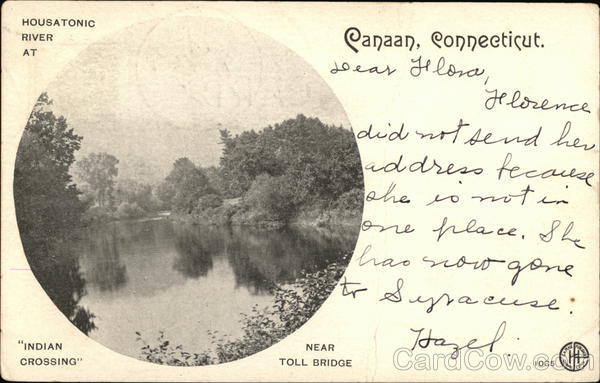 HOUSATONIC
RIVER
AT
Canaan, Connecticut.
Dear Flora,
Florence
did not send her
address because
she is not in
one place. She
has now gone
to Syracuse.
Hazel.
"INDIAN
CROSSING"
NEAR
TOLL BRIDGE
CardCow.com